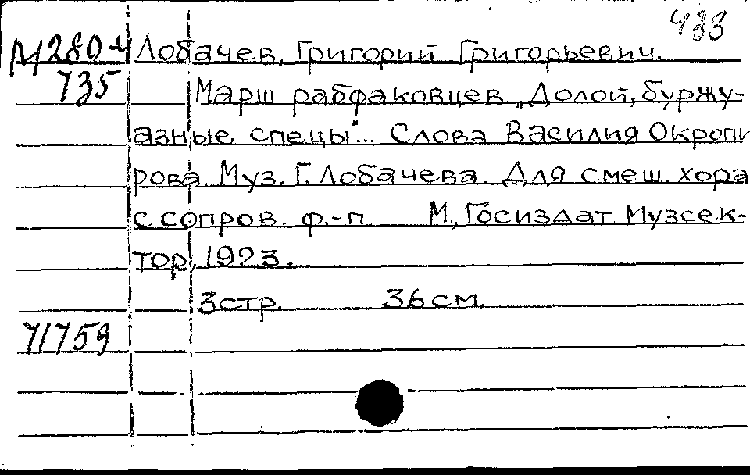 433
М280-4 Лобачев, Григорий Григорьевич.
735 Марш рабфаковцев „Долой, буржу-
азные спецы"... Слова Василия Окропи
рова. Муз. Г. Лобачева. Для смеш. хора
с сопров. ф.-п. М., Госиздат Музсек-
тор, 1923.
3 стр. 36 см.
71759